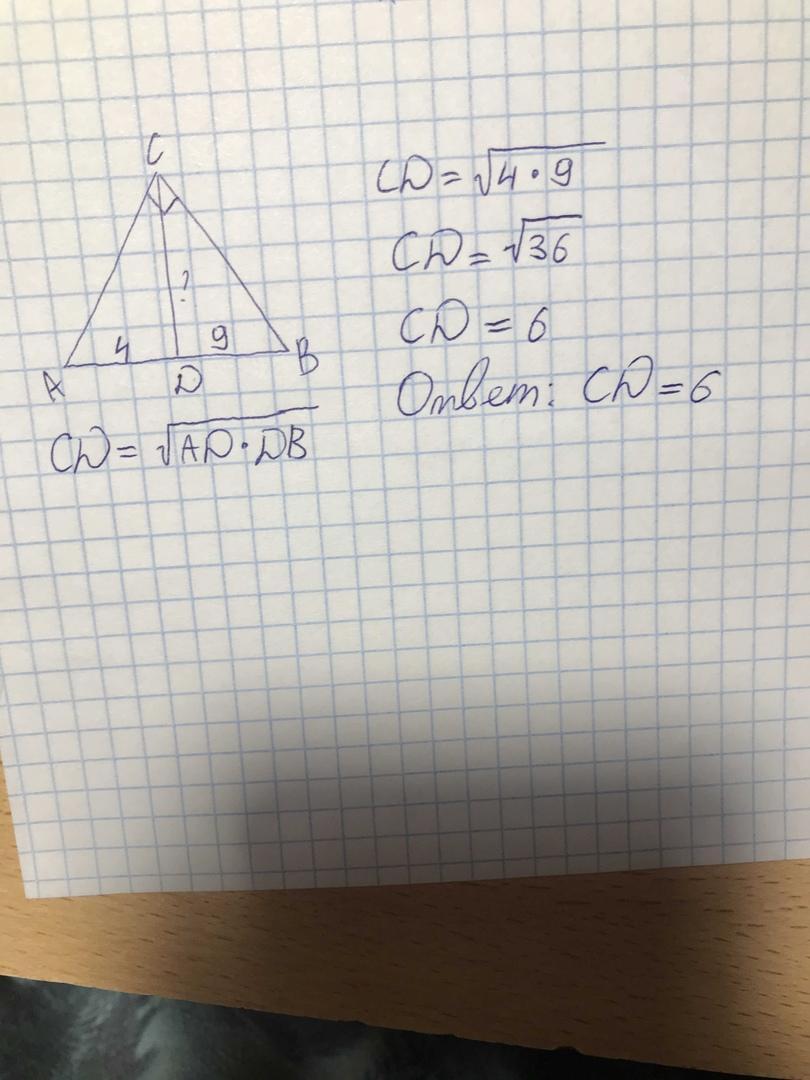 C
?
4 9
A D B
CD = √AD · DB
CD = √4 · 9
CD = √36
CD = 6
Ответ: CD = 6